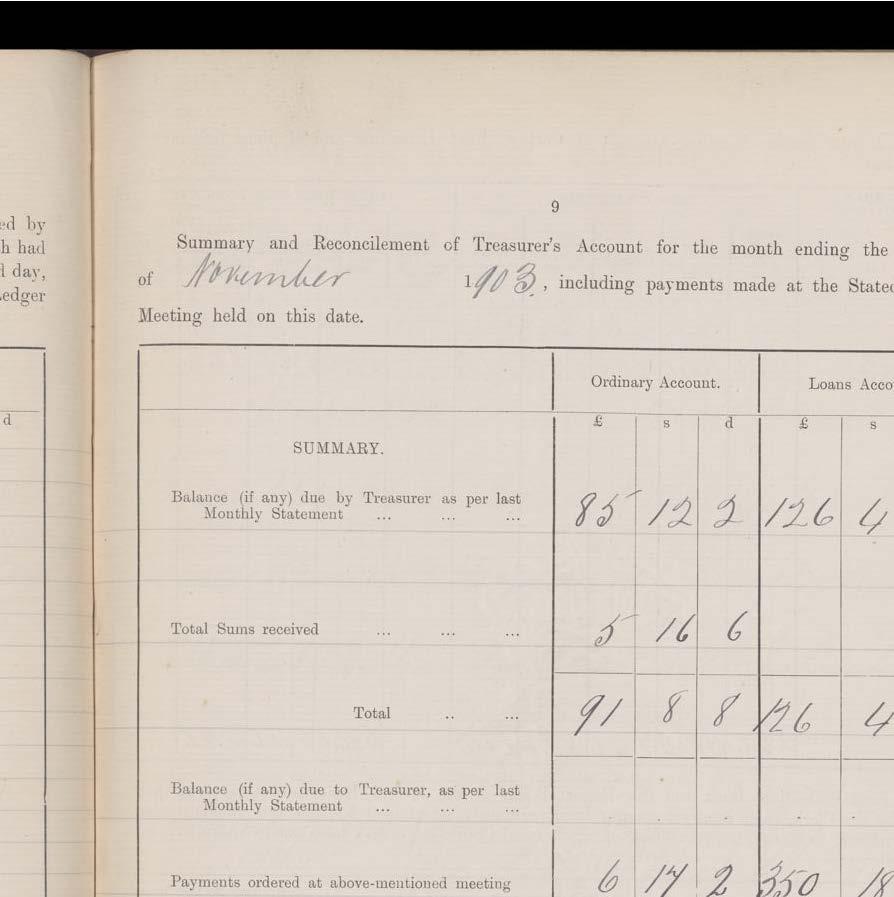 9
ed by
h had
d day,
Ledger
d
Summary and Reconcilement of Treasurer's Account for the month ending the
of November 1903, including payments made at the Stated
Meeting held on this date.
Ordinary Account. Loans Acco
£ s d £ s
SUMMARY.
Balance (if any) due by Treasurer as per last
Monthly Statement ... ... ... 85 12 2 126 4
Total Sums received ... ... ... 5 16 6
Total .. ... 91 8 8 126 4
Balance (if any) due to Treasurer, as per last
Monthly Statement ... ... ...
Payments ordered at above-mentioned meeting 6 17 2 350 18